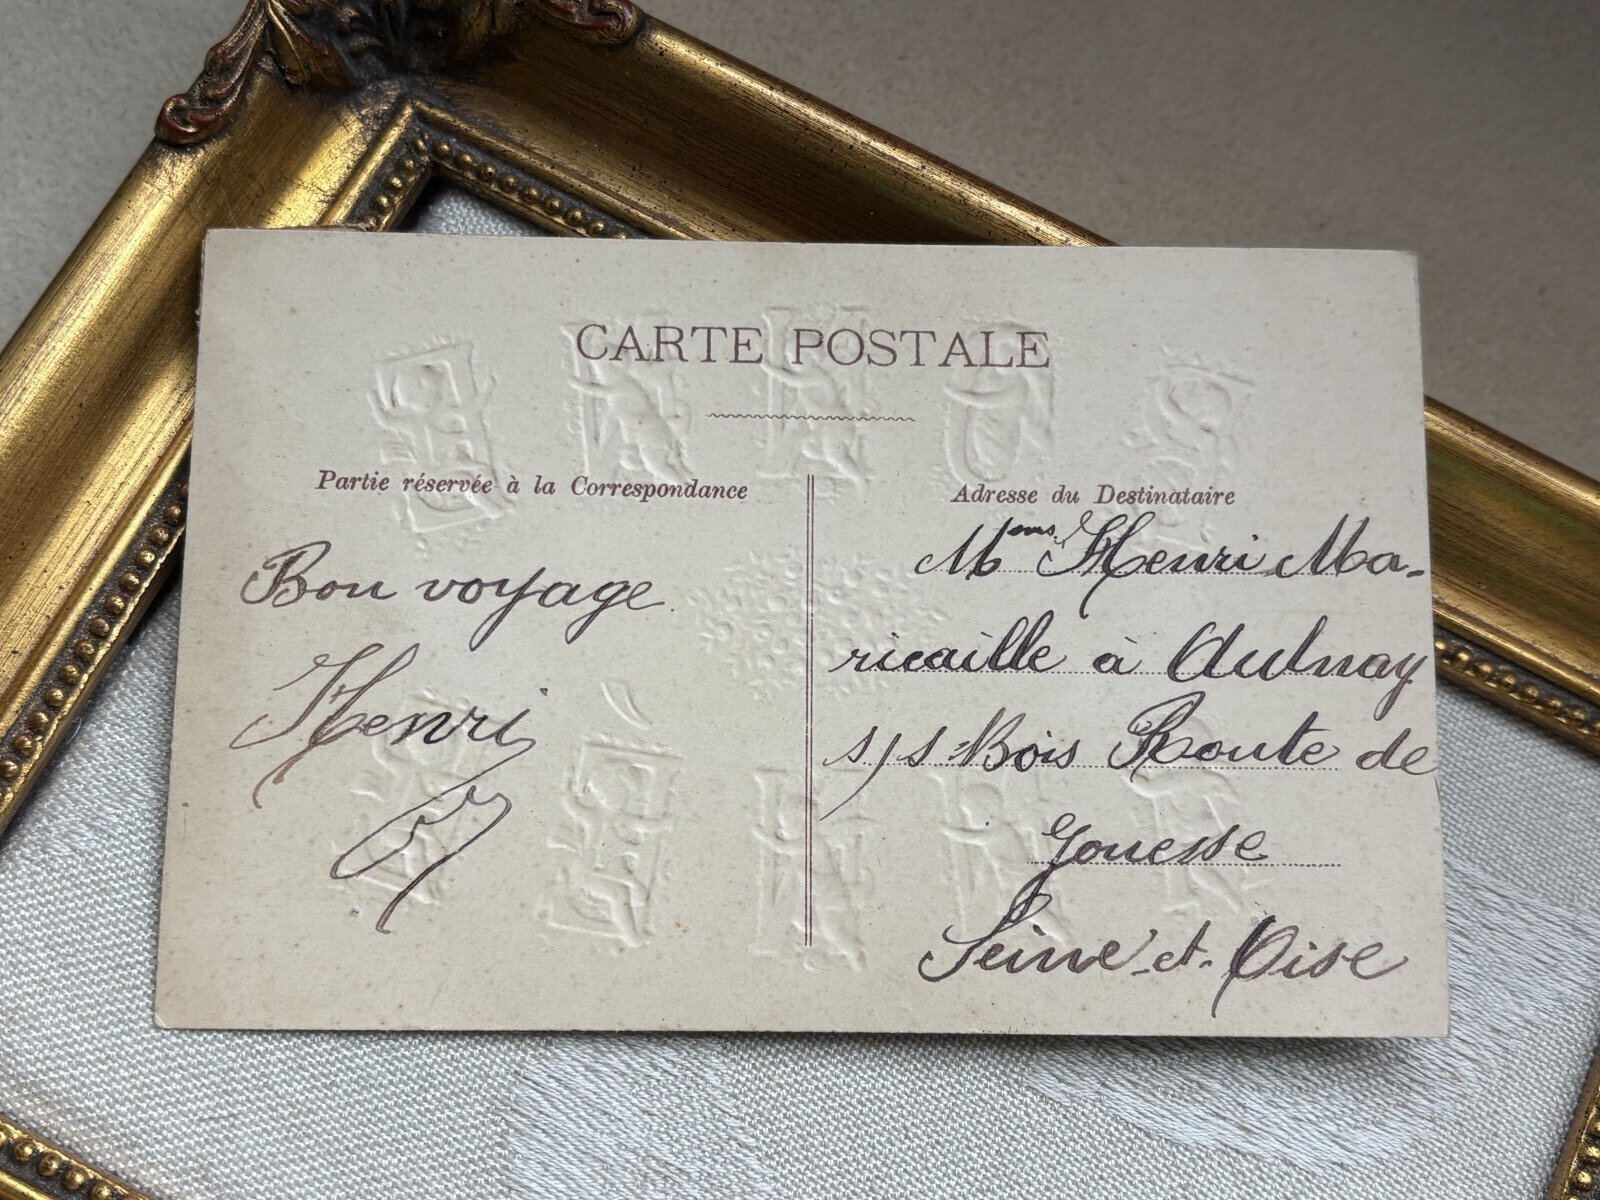 CARTE POSTALE
Partie réservée à la Correspondance
Bon voyage
Henri
Adresse du Destinataire
Henri Ma-
ricaille à Aulnay
s/s Bois Route de
Gonesse
Seine-et-Oise